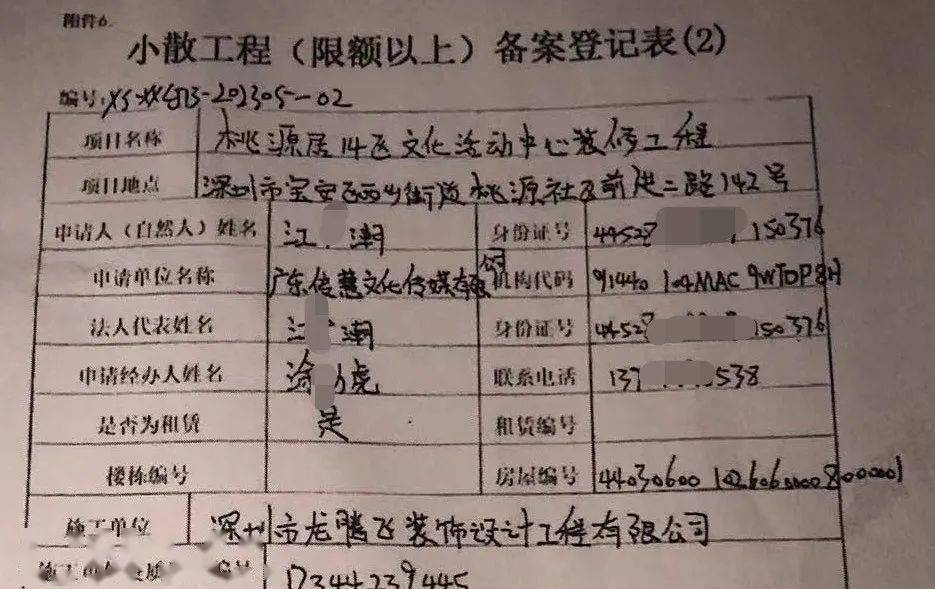 附件6
小散工程（限额以上）备案登记表(2)
编号:XSXXEJ3-202305-02
项目名称 桃源居14区文化活动中心装修工程
项目地点 深圳市宝安区西乡街道桃源社区前进二路142号
申请人（自然人）姓名 江 潮 身份证号 44528 150376
申请单位名称 广东传慧文化传媒有限公司 机构代码 91440104MAC9WTDP8H
法人代表姓名 江 潮 身份证号 44528 150376
申请经办人姓名 涂 虎 联系电话 137 538
是否为租赁 是 租赁编号
楼栋编号 房屋编号 4403060010260600008000001
施工单位 深圳市龙腾飞装饰设计工程有限公司
施工 质 编号 D344239445